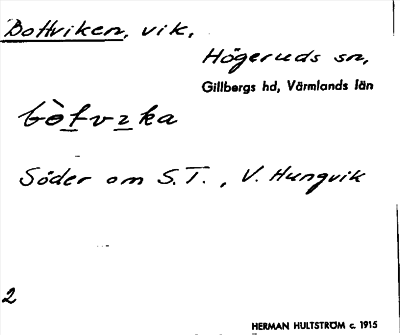 Bottviken, vik,
Högeruds sn,
Gillbergs hd, Värmlands län
Söder om S.T., V. Hungvik
2
HERMAN HULTSTRÖM c. 1915